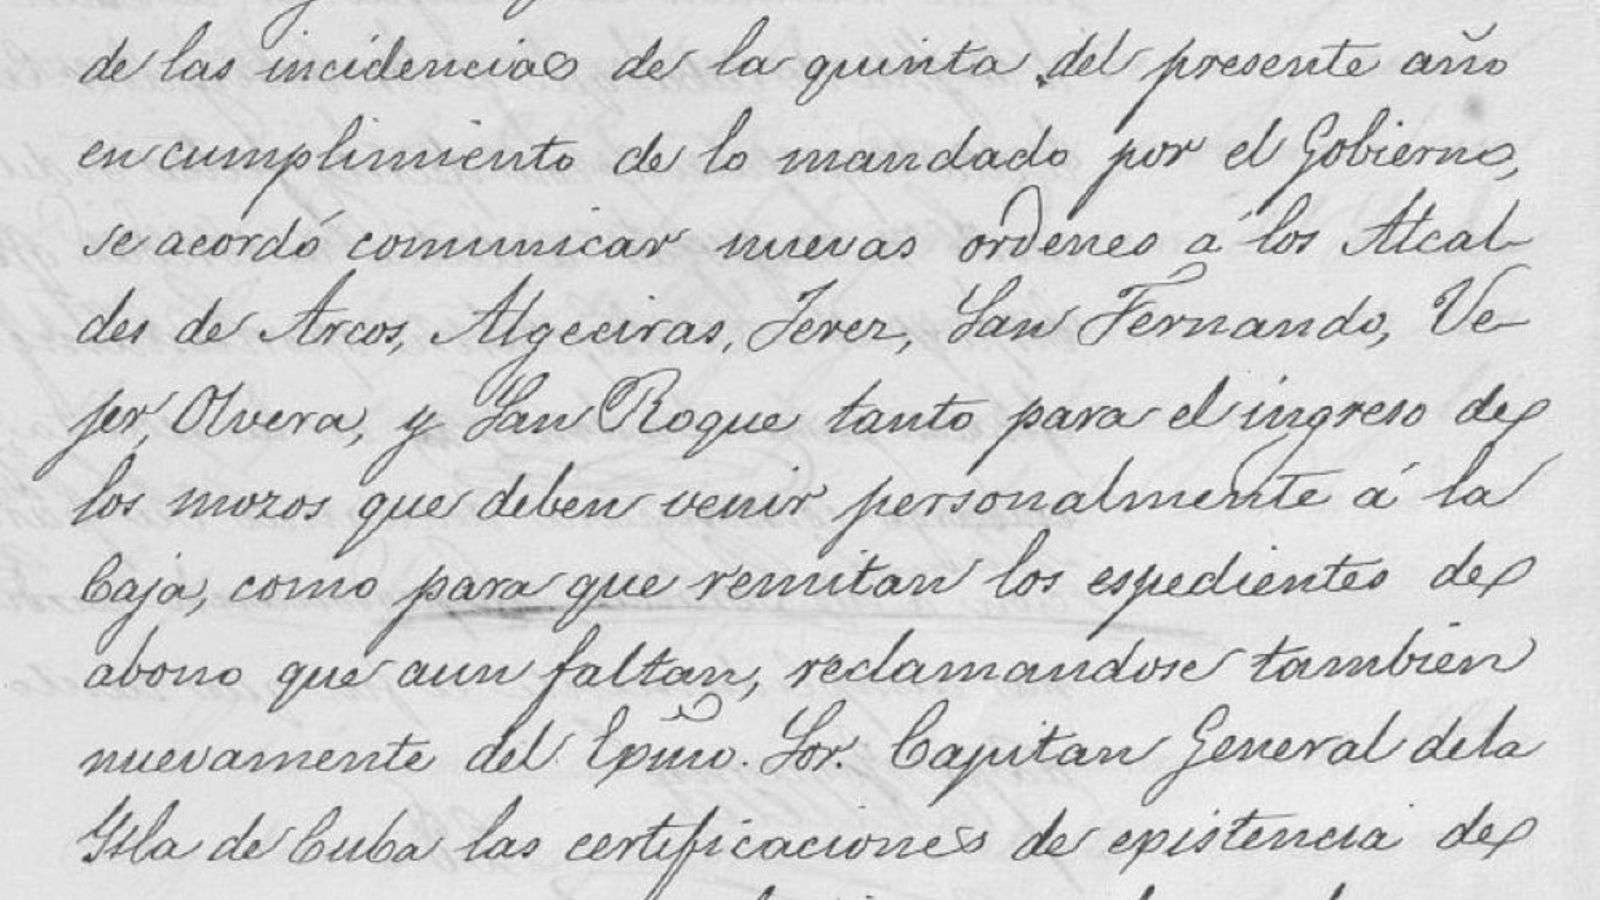 de las incidencias de la quinta del presente año
en cumplimiento de lo mandado por el Gobierno,
se acordó comunicar nuevas ordenes á los Alcal-
des de Arcos, Algeciras, Jerez, San Fernando, Ve-
jer, Olvera, y San Roque tanto para el ingreso de
los mozos que deben venir personalmente á la
Caja, como para que remitan los espedientes de
abono que aun faltan, reclamandose tambien
nuevamente del Exmo. Sor. Capitan General de la
Isla de Cuba las certificaciones de existencia de